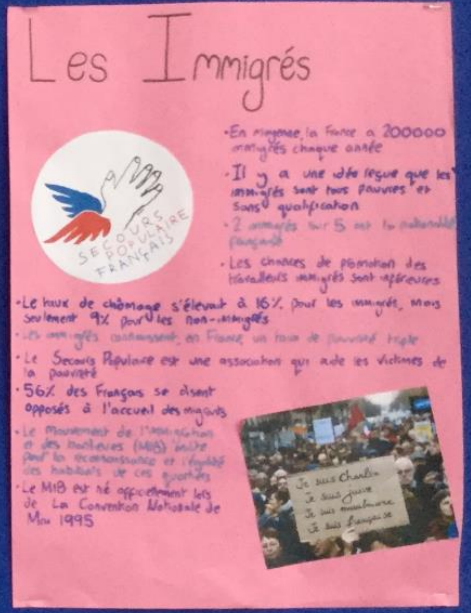 Les Immigrés
SECOURS
POPULAIRE
FRANÇAIS
• En moyenne, la France a 200000
immigrés chaque année
• Il y a une idée reçue que les
immigrés sont tous pauvres et
sans qualification
• 2 immigrés sur 5 ont la nationalité
française
• Les chances de promotion des
travailleurs immigrés sont inférieures
• Le taux de chômage s'élevait à 16% pour les immigrés, mais
seulement 9% pour les non-immigrés
• Les immigrés connaissent en France un taux de pauvreté triple
• Le Secours Populaire est une association qui aide les victimes de
la pauvreté
• 56% des Français se disent
opposés à l'accueil des migrants
• Le Mouvement de l'Immigration
et des Banlieues (MIB) milite
pour la reconnaissance et l'égalité
des habitants de ces quartiers
• Le MIB est né officiellement lors
de La Convention Nationale de
Mai 1995
Je suis Charlie
Je suis juive
Je suis musulmane
Je suis française